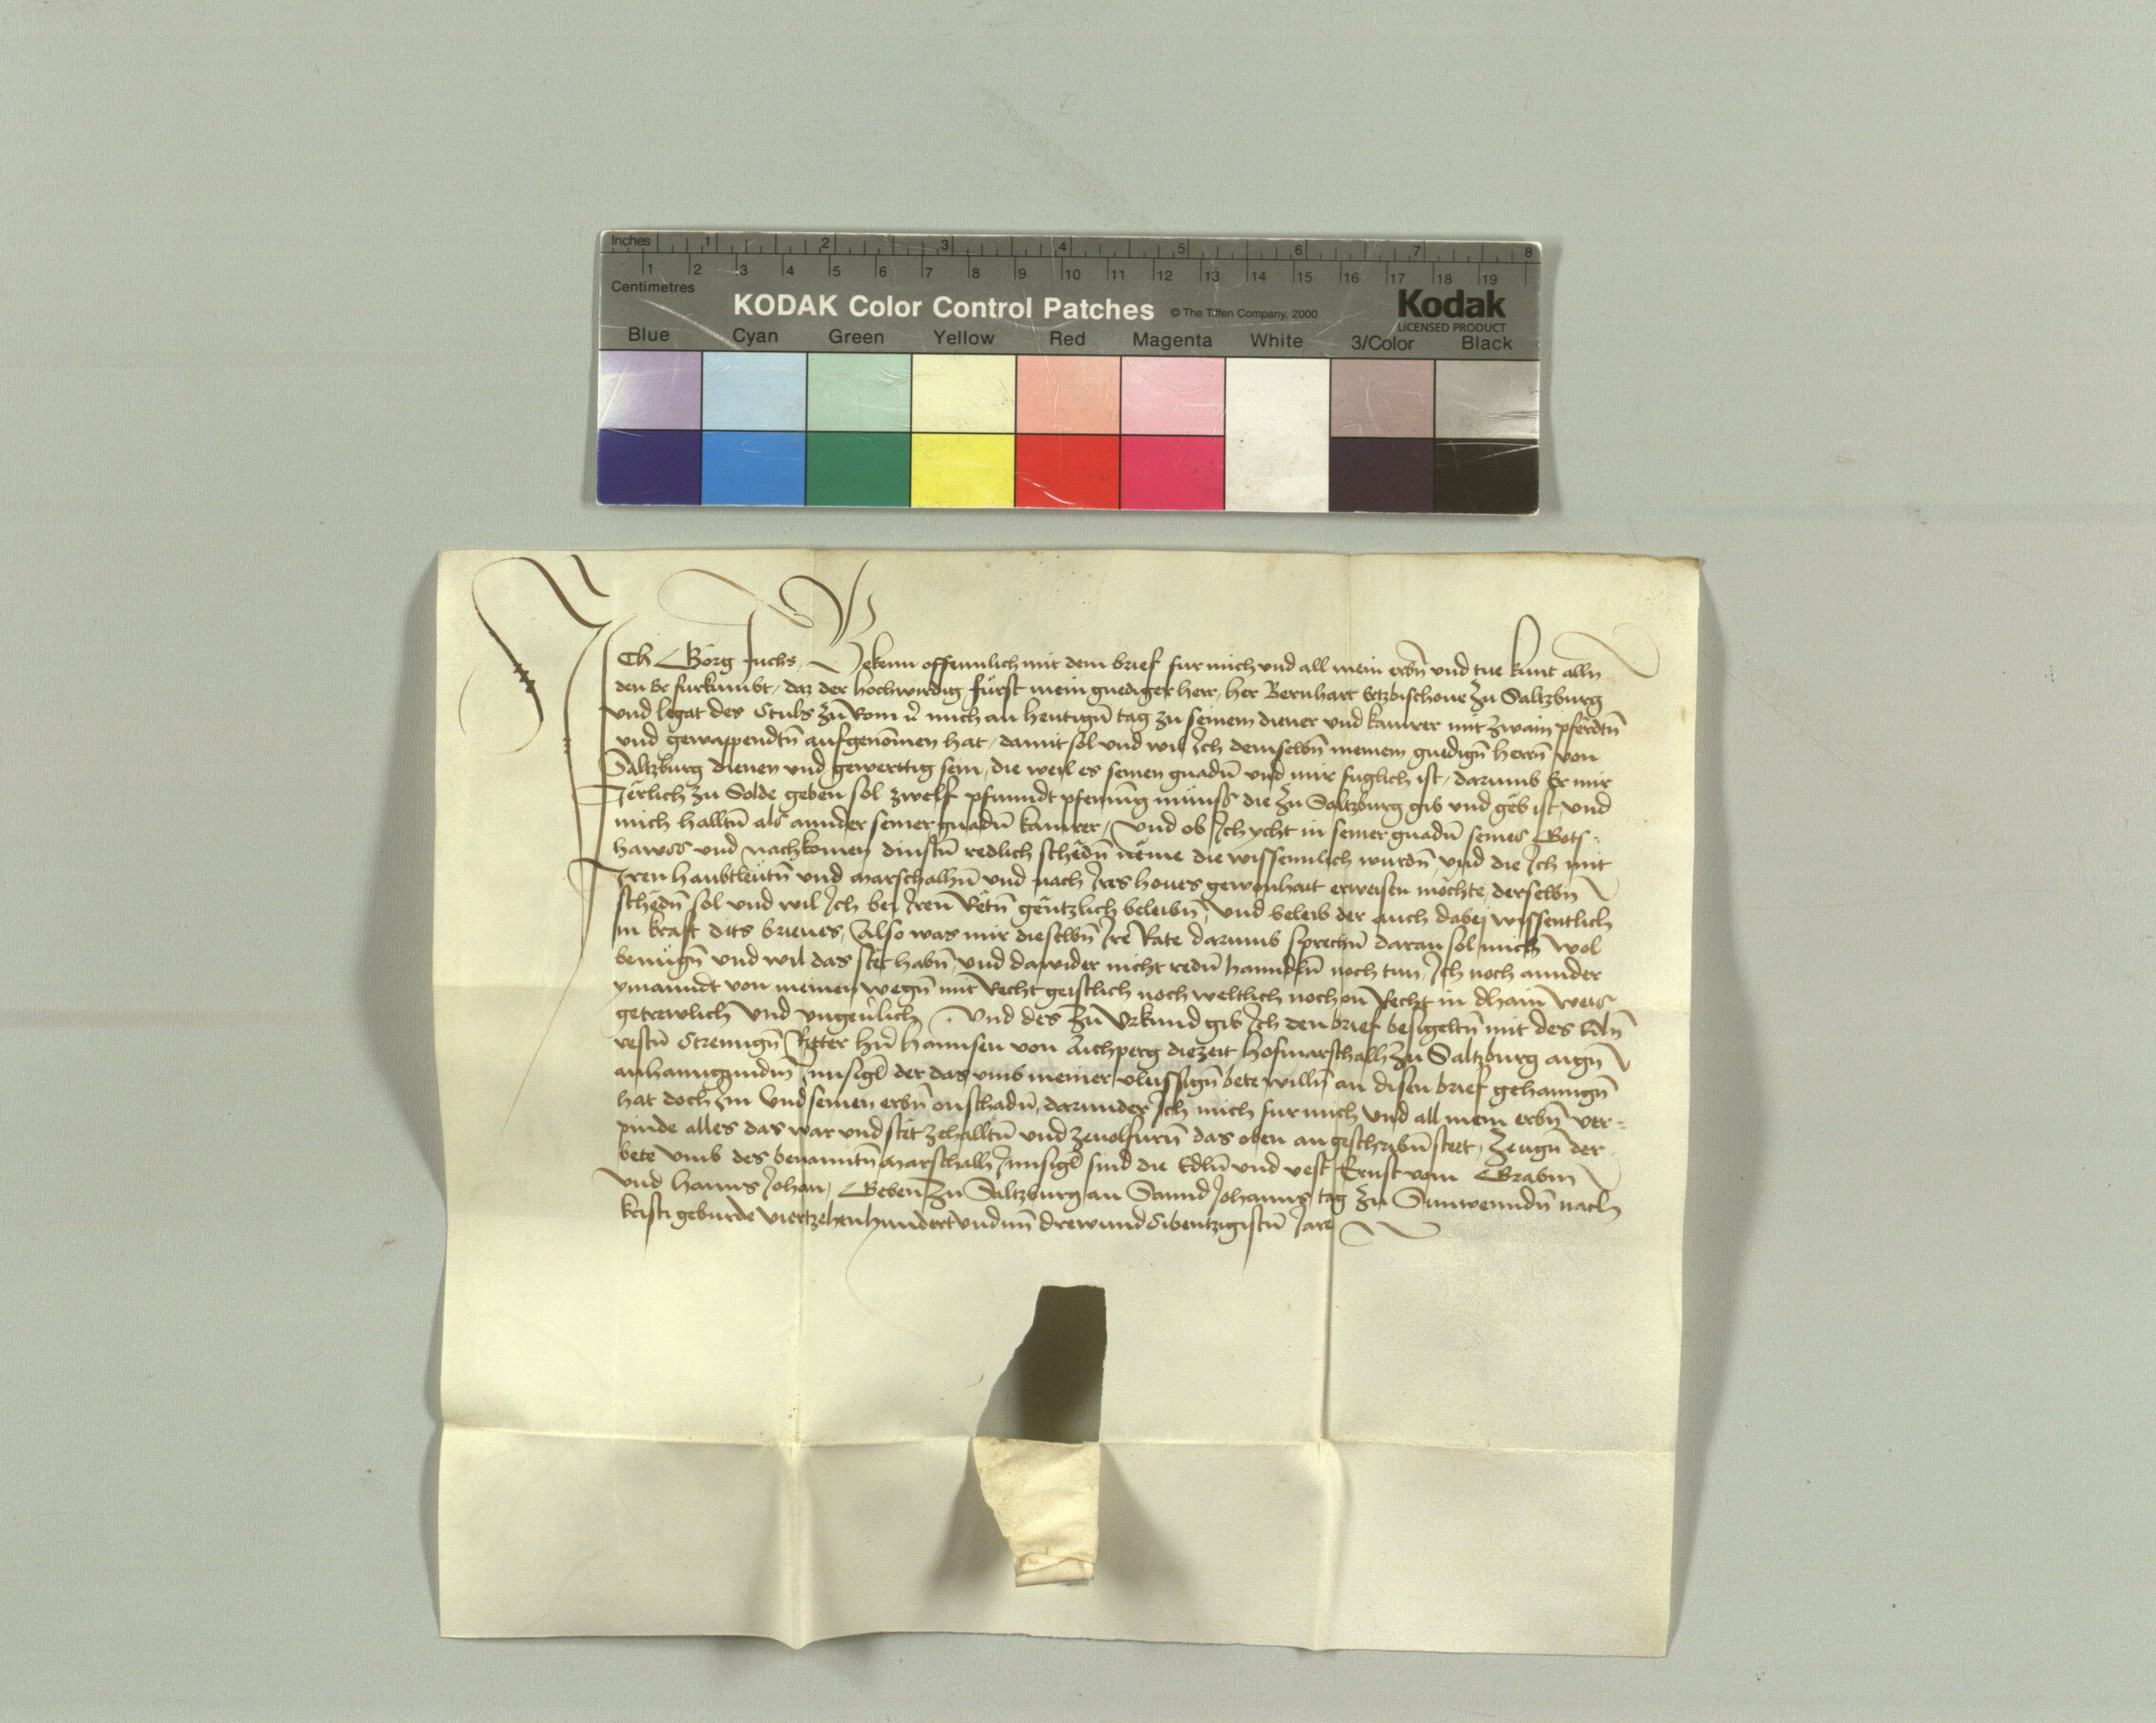 Inches 1 2 3 4 5 6 7 8
1 2 3 4 5 6 7 8 9 10 11 12 13 14 15 16 17 18 19
Centimetres
KODAK Color Control Patches © The Tiffen Company, 2000 Kodak
LICENSED PRODUCT
Blue Cyan Green Yellow Red Magenta White 3/Color Black
Ich Görg Fuchs Bekenn offennlich mit dem brief fur mich und all mein erbn̄ und tue kunt alln̄
den Er furkumbt, daz der hochwirdig fürst mein gnediger herr, her Bernhart Ertzbischoue zu Saltzburg
und legat des Stuls zu Rom mich an heutign̄ tag zu seinem diener und kamrer mit zwain pferdtn̄
und gewappendtn̄ aufgenomen hat, damit sol und wil Ich demselbn̄ meinem gnedign̄ herrn̄ von
Saltzburg dienen und gewerttig sein, die weil es seinen gnadn̄ und mir fuglich ist, darumb Er mir
Jërlich zu Solde geben sol zwelf pfunndt pfennīg münss die zu Saltzburg gib und geb ist, und
mich halltn̄ als annder seiner gnadn̄ kamrer, Und ob Ich ycht in seiner gnadn̄ seines Gots-
hawss und nachkomen dinstn̄ redlich schëdn̄ nëme die wissennlich wurdn̄, und die Ich mit
Iren haubtleutn̄ und marschalhn̄ und nach Ires houes gewonhait erweisen möchte, derselbn̄
schëdn̄ sol und wil Ich bei Iren Rëtn̄ gëntzlich beleibn̄, und beleib der auch dabej wissentlich
in kraft dits brieues, Also was mir dieselbn̄ Ire Rate darumb sprechn̄ daran sol mich wol
benügn̄ und wil das stët habn̄, und dawider nicht redn̄ hanndln̄ noch tun, Ich noch annder
ymanndt von meinen wegn̄ mit Recht geistlich noch weltlich noch on Recht in dhain weis
getrewlich und ungeuerlich. Und des zu Urkund gib Ich den brief besigeltn̄ mit des Edln̄
vestn̄ Strenngn̄ Ritter hern̄ Hannsen von Aichperg diezeit hofmarschalh zu Saltzburg aign̄
anhanngundm̄ Innsigl der das umb meiner vleissign̄ bete willn̄ an disen brief gehanngn̄
hat doch Im und seinen erbn̄ on schadn̄, darunder Ich mich fur mich und all mein erbn̄ ver-
pinde alles das war und stët zehalltn̄ und zeuolfurn̄ das oben an geschribn̄ steet, Zeugn̄ der
bete umb des benanntn̄ marschalh Innsigl sind die Edln̄ und vest Ernst vom Grabm̄
und Hanns Johan, Gebn̄ zu Saltzburg an Sannd Johanns tag zu Sunwenndn̄ nach
kristi geburde viertzehenhundert und im drewundsibentzigistn̄ Jare